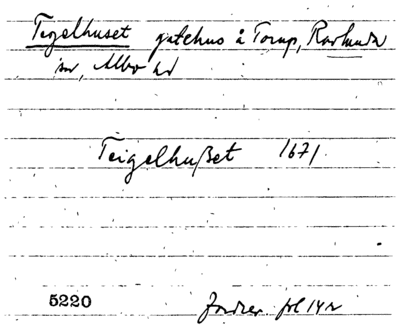 Tegelhuset gatehus å Torup,
sn, Albo hd
Teigelhußet 1671
5220 Jordreg fol 142